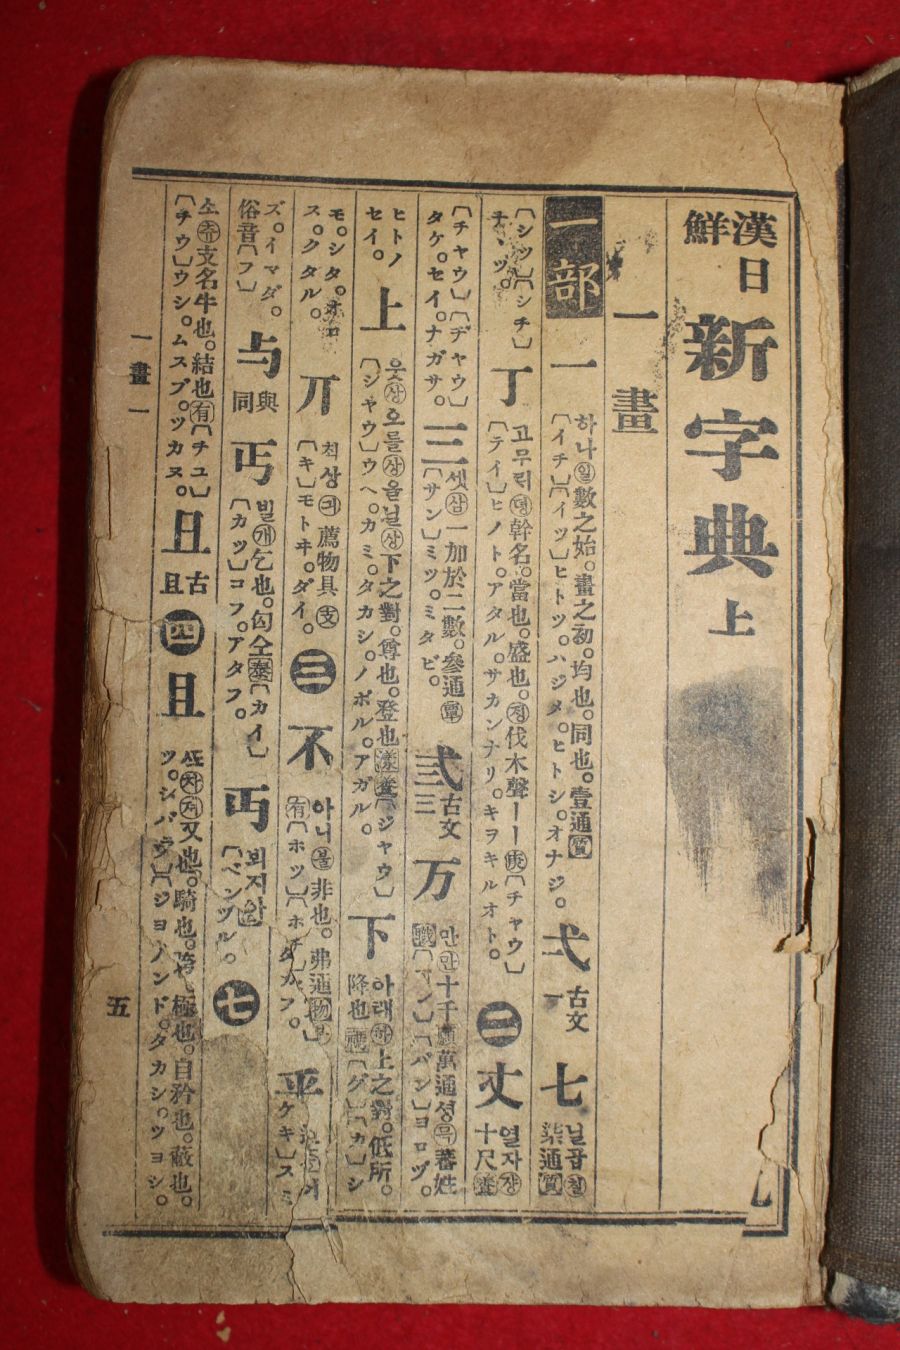 漢日鮮
新字典 上
一畫
一部
一 하나일 數之始。畫之初。均也。同也。壹通質〔イチ〕〔イツ〕ヒトツ。ハジメ。ヒトシ。オナジ。
弌 古文一
七 닐곱칠 柒通質
〔シツ〕〔シチ〕ナヽツ。
丁 고무릭뎡 幹名。當也。盛也。정 伐木聲ーー庚〔チヤウ〕〔テイ〕ヒノト。アタル。サカンナリ。キヲキルオト。
二
丈 열자쟝 十尺養
〔チヤウ〕〔ヂヤウ〕タケ。セイ。ナガサ。
三 셋삼 一加於二數。參通覃〔サン〕ミツ。ミタビ。
弎 古文三
万 만만 十千 萬通 성믁 蕃姓 〔マン〕〔バン〕ヨロヅ。
ヒトノセイ。
上 웃샹 오를샹 올닐샹 下之對。尊也。登也漾養〔ジヤウ〕〔シヤウ〕ウヘ。カミ。タカシ。ノボル。アガル。
下 아래하 上之對。低所。降也禡〔ゲ〕〔カ〕シ
モ。シタ。オロス。クタル。
丌 척상긔 薦物具支〔キ〕モトヰ。ダイ。
三
不 아니불 非也。弗通物 有〔ホツ〕
平
ズ。イマダ。俗音〔フ〕
与 與同
丐 빌개 乞也。匃仝泰〔カイ〕〔カツ〕コフ。アタフ。
丏 〔ベン〕
七
丑 소츄 支名牛也。結也有〔チユ〕〔チウ〕ウシ。ムスブ。ツカヌ。
且 古
四
且 又也。 極也。自矜也。蔽也。
一畫 一
五